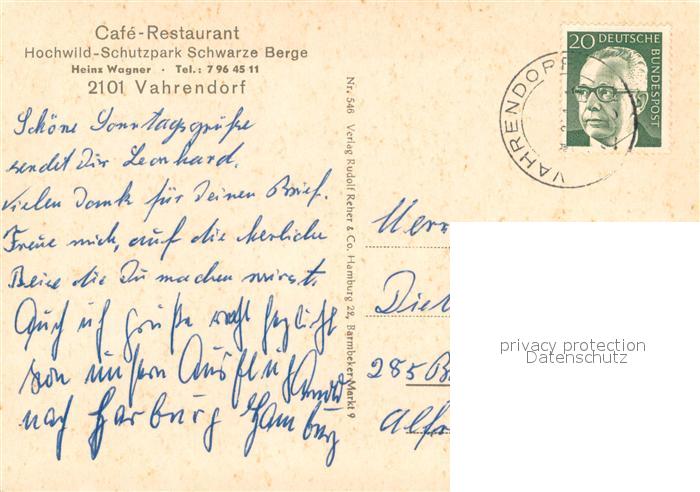 Café-Restaurant
Hochwild-Schutzpark Schwarze Berge
Heinz Wagner · Tel.: 7 96 45 11
2101 Vahrendorf
Schöne Sonntagsgrüße
sendet Dir Leonhard.
Vielen Dank für Deinen Brief.
Freue mich, auf die herrliche
Reise die Du machen wirst.
Auch ich grüße recht herzlich
von unsern Ausflug
nach Harburg Hamburg
Nr. 546 Verlag Rudolf Reher & Co. Hamburg 22, Barmbeker Markt 9
20 DEUTSCHE BUNDESPOST
VAHRENDORF
Herr
Diet
285 B
Alfr
privacy protection
Datenschutz